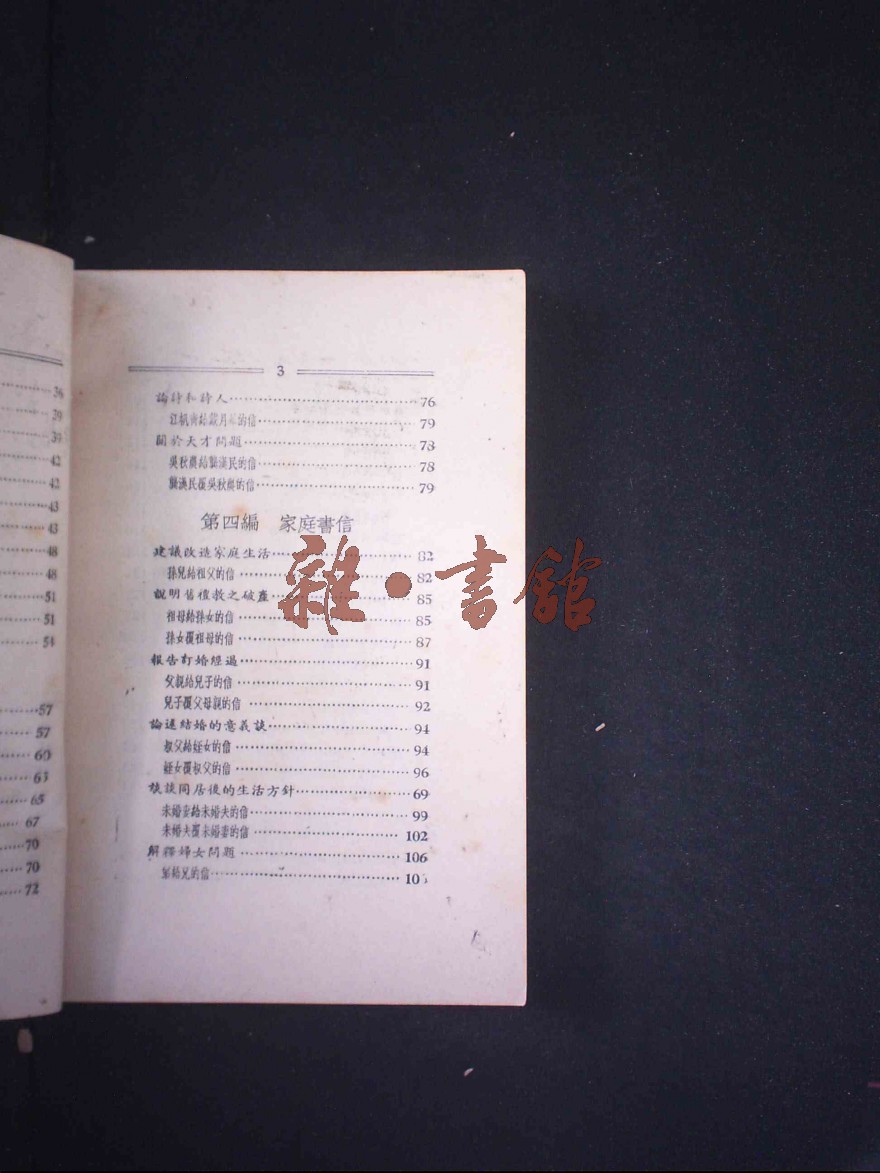 36
39
39
42
42
43
43
48
48
51
51
54
57
57
60
63
65
67
70
70
72
3
論詩和詩人 76
的信 79
關於天才問題 73
吳秋農給龔漢民的信 78
龔漢民覆吳秋農的信 79
第四編 家庭書信
建議改造家庭生活 82
孫兒給祖父的信 82
說明舊禮教之破產 85
祖母給孫女的信 85
孫女覆祖母的信 87
報告訂婚經過 91
父親給兒子的信 91
兒子覆父母親的信 92
論述結婚的意義 94
叔父給姪女的信 94
姪女覆叔父的信 96
談同居後的生活方針 69
未婚妻給未婚夫的信 99
未婚夫覆未婚妻的信 102
解釋婦女問題 106
給兄的信 10
雜·書館